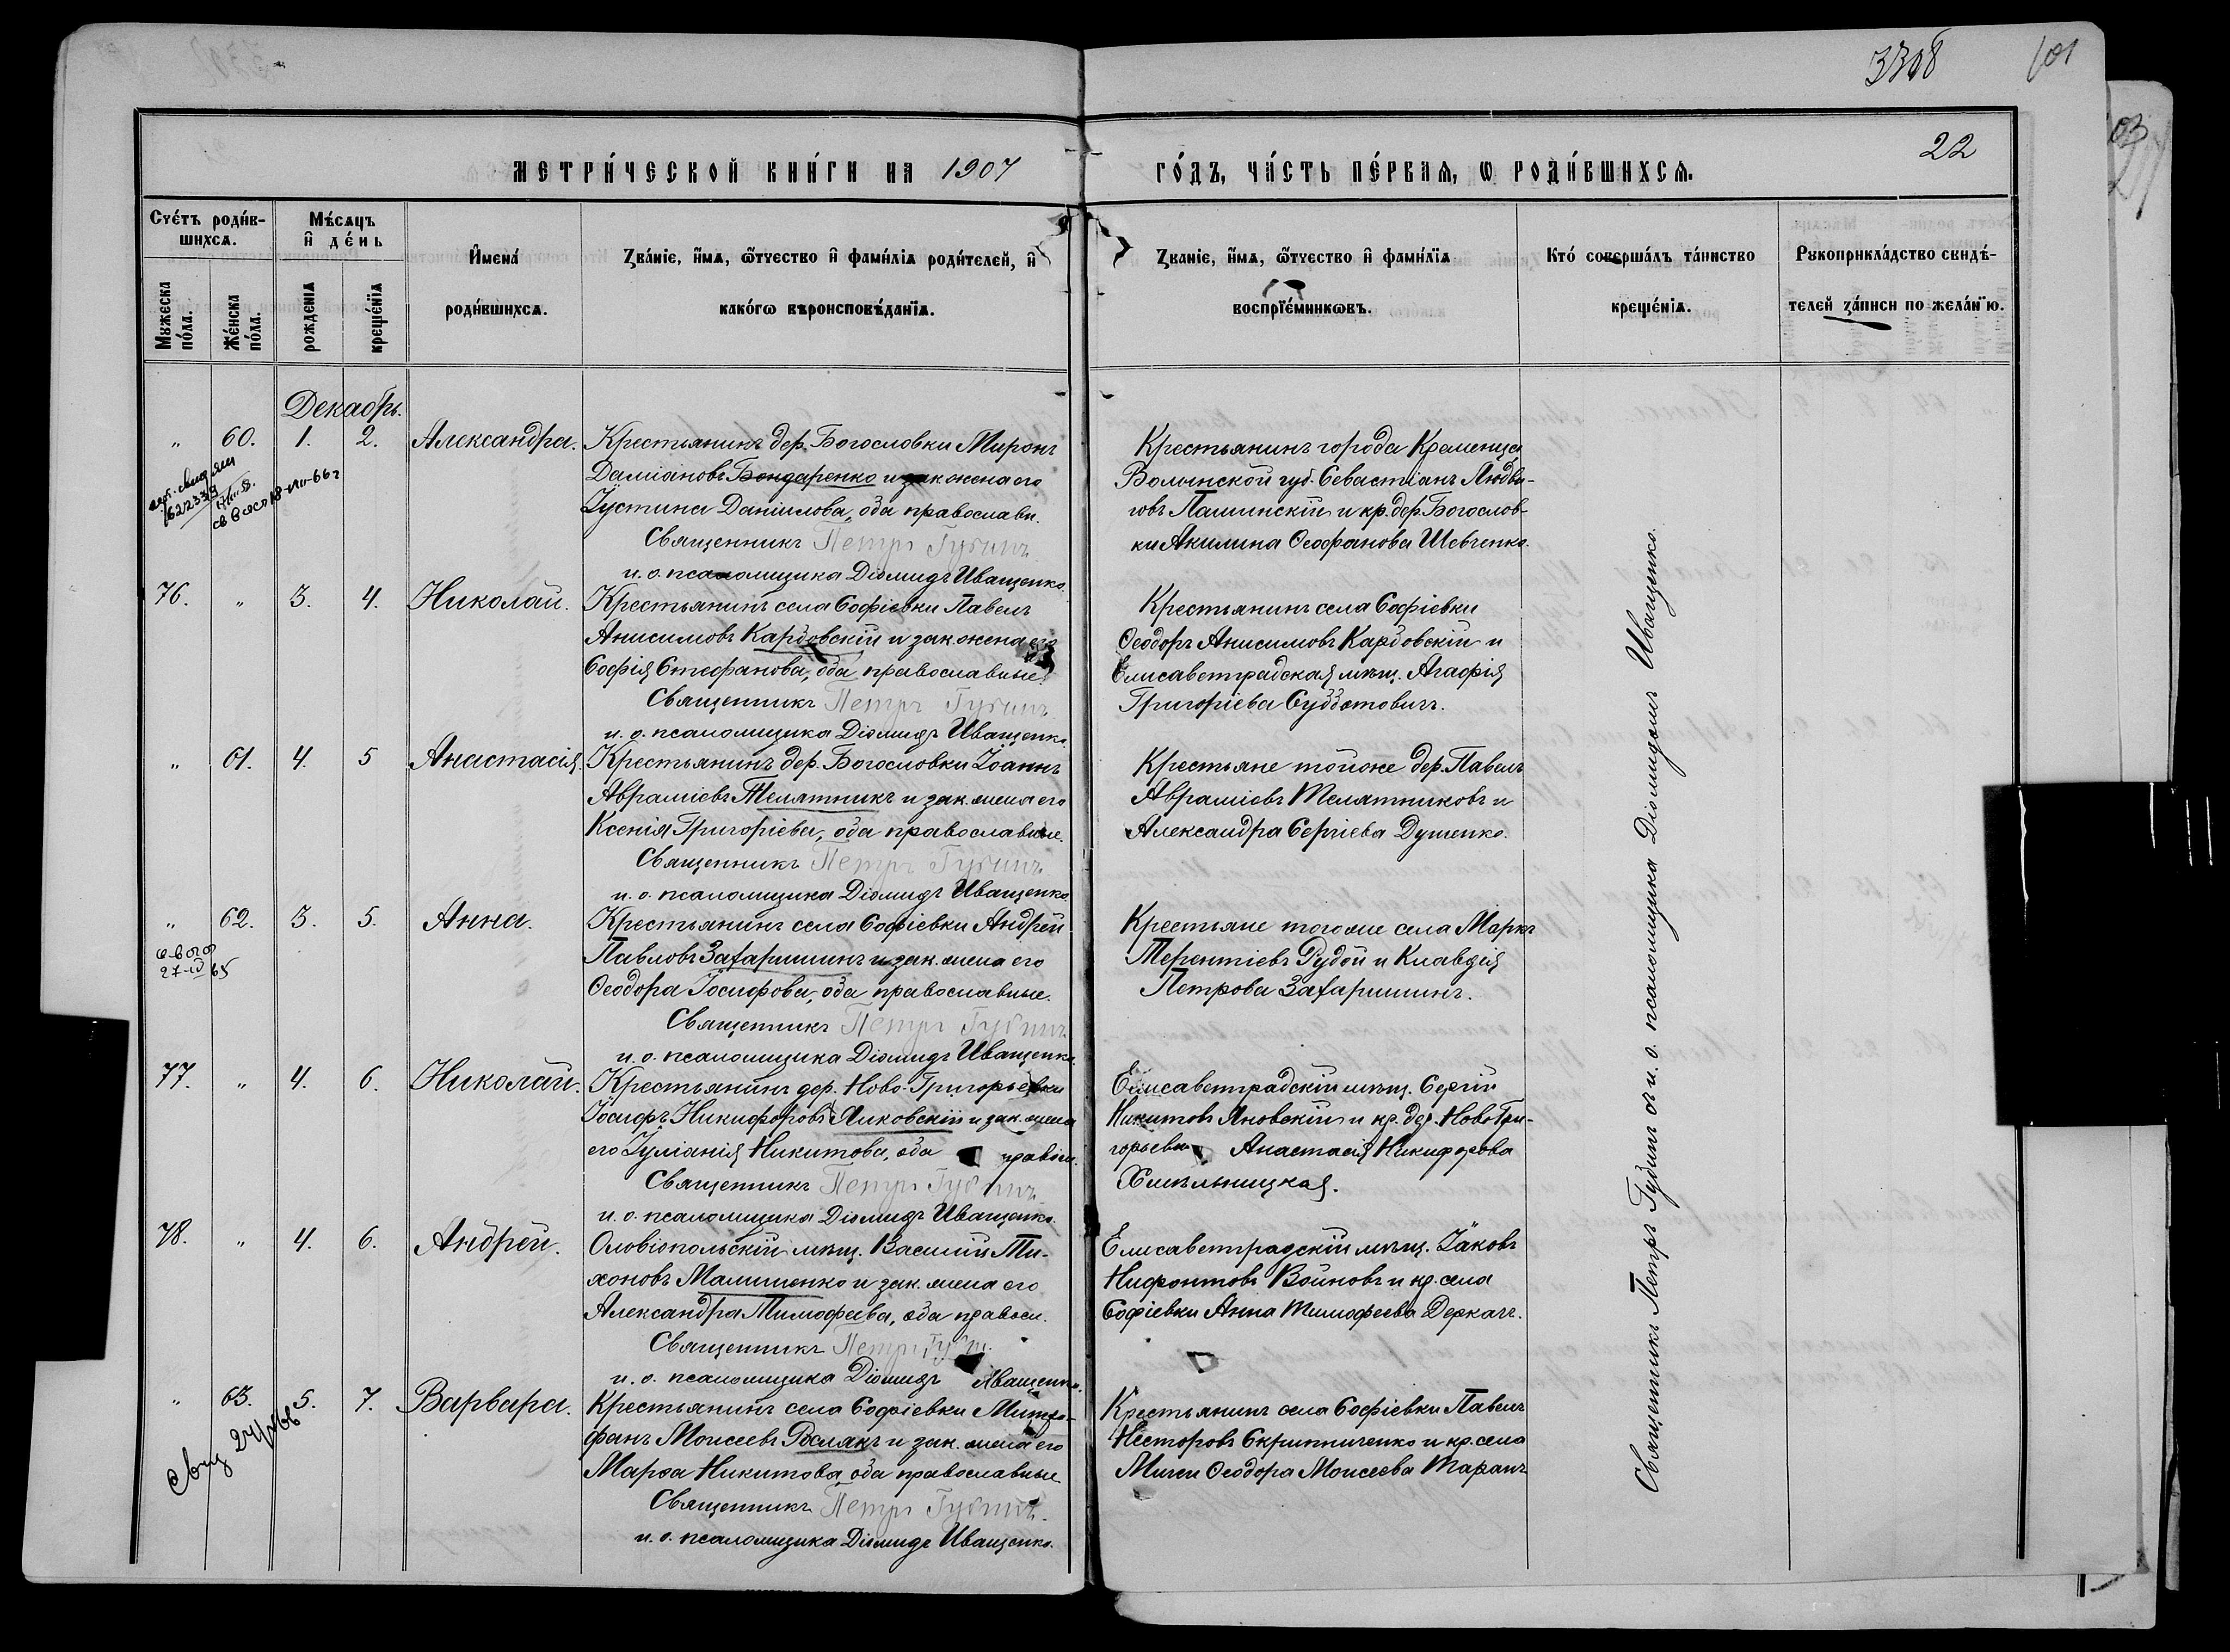 3308
101
03
22
МЕТРИ́ЧЕСКОЙ КНИ́ГИ НА 1907
ГО́ДЪ, ЧА́СТЬ ПЕ́РВАѦ, Ѡ РОДИ́ВШИХСѦ.
Счéтъ роди́в-
шихсѧ.
Мѣ́сѧцъ
и҆ де́нь
И҆мена́
роди́вшихсѧ.
Зва́нїе, и҆́мѧ, ѻ҆́тчество и҆ фами́лїѧ роди́телей, и҆
како́гѡ вѣроисповѣ́данїѧ.
Зва́нїе, и҆́мѧ, ѻ҆́тчество и҆ фами́лїѧ
воспрїе́мникѡвъ.
Кто́ соверша́лъ та́инство
креще́нїѧ.
Рꙋкоприкла́дство свидѣ́-
телей за́писи по жела́нїю.
Мꙋжеска
по́ла.
Же́нска
по́ла.
рожде́нїѧ
креще́нїѧ
Декабрь.
" 60. 1. 2. Александра.
Крестьянинъ дер. Богословки Миронъ
Даміановъ Бондаренко и зак жена его
Іустина Даніилова, оба православн.
Священникъ Петръ Губинъ
и. о. псаломщика Діомидъ Иващенко.
Крестьянинъ города Кременца
Волынской губ. Севастіанъ Людви-
говъ Пашинскій и кр. дер. Богослов-
ки Акилина Ѳеофанова Шевченко.
76. " 3. 4. Николай.
Крестьянинъ села Софіевки Павелъ
Анисимовъ Кардовскій и зак жена его
Софія Стефанова, оба православные.
Священникъ Петръ Губинъ
и. о. псаломщика Діомидъ Иващенко.
Крестьянинъ села Софіевки
Ѳеодоръ Анисимовъ Кардовскій и
Елисаветградская мѣщ. Агафія
Григоріева Субботовичъ.
" 61. 4. 5 Анастасія.
Крестьянинъ дер. Богословки Іоаннъ
Авраміевъ Телятникъ и зак. жена его
Ксенія Григоріева, оба православные.
Священникъ Петръ Губинъ
и. о. псаломщика Діомидъ Иващенко.
Крестьяне тойже дер. Павелъ
Авраміевъ Телятниковъ и
Александра Сергіева Душенко.
" 62. 3. 5. Анна.
27-IV 65
Крестьянинъ села Софіевки Андрей
Павловъ Захаришинъ и зак. жена его
Ѳеодора Іосифова, оба православные.
Священникъ Петръ Губинъ
и. о. псаломщика Діомидъ Иващенко.
Крестьяне тогоже села Маркъ
Терентіевъ Рудой и Клавдія
Петрова Захаришинъ.
77. " 4. 6. Николай.
Крестьянинъ дер. Ново-Григорьевки
Іосифъ Никифоровъ Яиковскій и зак. жена
его Іуліанія Никитова, оба правосл.
Священникъ Петръ Губинъ
и. о. псаломщика Діомидъ Иващенко.
Елисаветградскій мѣщ. Сергій
Никитовъ Яновскій и кр. дер. Ново Гри-
горьевки Анастасія Никифорова
Хмѣльницкая.
78. " 4. 6. Андрей.
Оловіопольскій мѣщ. Василій Ти-
хоновъ Малишенко и зак. жена его
Александра Тимофеева, оба правосл.
Священникъ Петръ Губин.
и. о. псаломщика Діомидъ Иващенко.
Елисаветградскій мѣщ. Іаковъ
Нифонтовъ Войновъ и кр. села
Софіевки Анна Тимофеева Деркачъ.
" 63. 5. 7. Варвара.
Свид 24/
Крестьянинъ села Софіевки Митро-
фанъ Моисеевъ Рослякъ и зак. жена его
Марѳа Никитова, оба православные
Священникъ Петръ Губинъ.
и. о. псаломщика Діомидъ Иващенко.
Крестьянинъ села Софіевки Павелъ
Несторовъ Скрипниченко и кр. села
Ѳеодора Моисеева Таранъ
Священникъ Петръ Губинъ съ и. о. псаломщика Діомидомъ Иващенко.